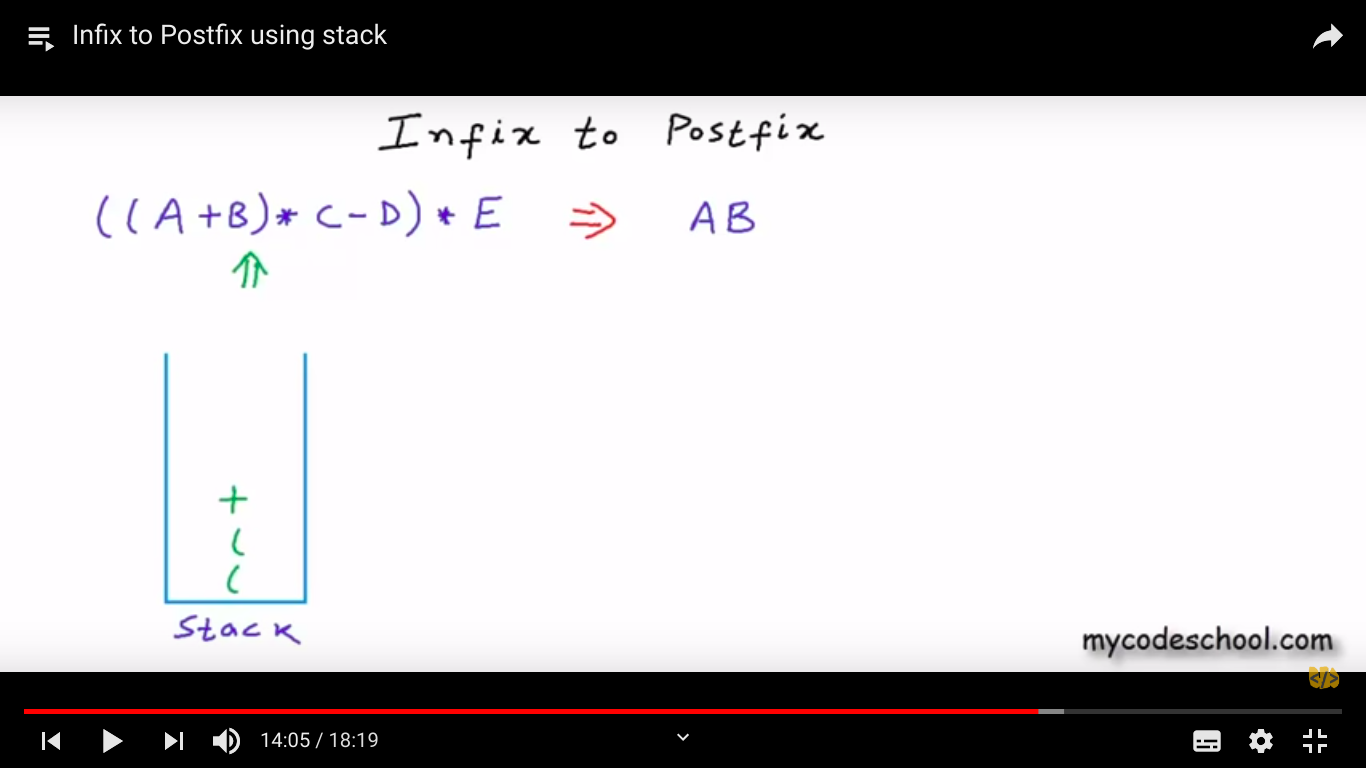 Infix to Postfix using stack
Infix to Postfix
((A+B)* C-D) * E ⇒ AB
+
(
(
Stack
mycodeschool.com
</>
14:05 / 18:19